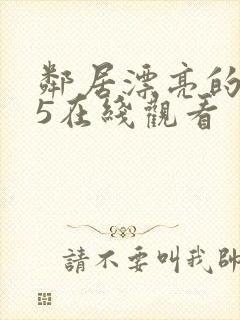 鄰居漂亮的
5在綫觀看
請不要叫我帥